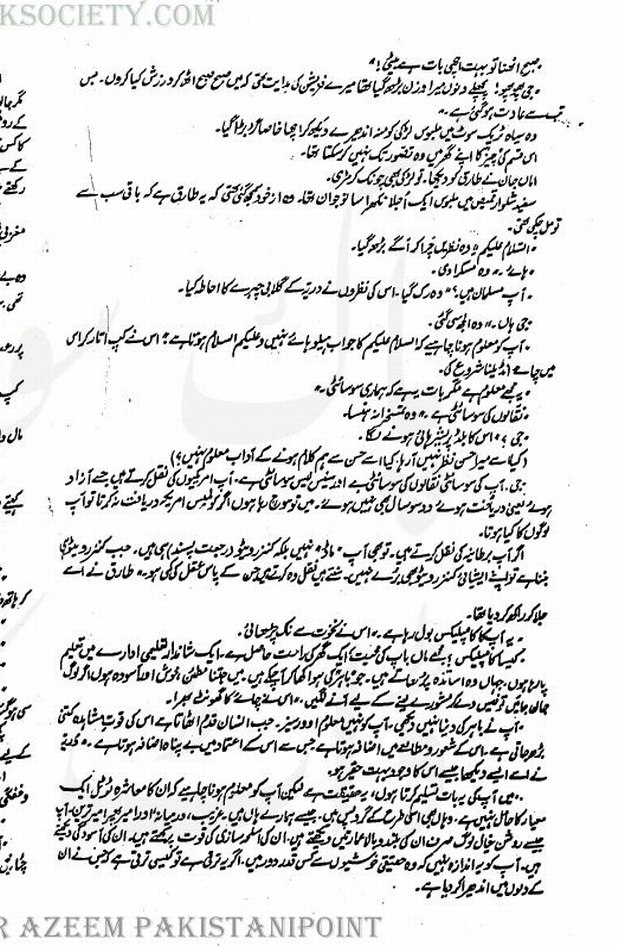 KSOCIETY.COM
صبح اٹھنا تو بہت اچھی بات ہے بیٹی!"
"جی پھپھو! پچھلے دنوں میرا وزن بڑھ گیا تھا میرے فزیشن کی ہدایت تھی کہ میں صبح صبح اٹھ کر ورزش کیا کروں۔ بس
تب سے عادت ہو گئی ہے۔"
وہ سیاہ ٹریک سوٹ میں ملبوس لڑکی کو منہ اندھیرے دیکھ کر اچھا خاصا گڑبڑا گیا۔
اس قسم کی چیز کا اپنے گھر میں وہ تصور تک نہیں کر سکتا تھا۔
اماں جان نے طارق کو دیکھا۔ تو لڑکی بھی چونک کر مڑی۔
سفید شلوار قمیض میں ملبوس ایک اُجلا نکھرا سا نوجوان تھا۔ وہ از خود سمجھ گئی تھی کہ یہ طارق ہے کہ باقی سب سے
تو مل چکی تھی۔
"السلام علیکم" وہ نظریں چرا کر آگے بڑھ گیا۔
"ہائے" وہ مسکرا دی۔
"آپ مسلمان ہیں؟" وہ رک گیا۔ اس کی نظروں نے دریہ کے گلابی چہرے کا احاطہ کیا۔
"جی ہاں۔" وہ الجھ سی گئی۔
"آپ کو معلوم ہونا چاہیے کہ السلام علیکم کا جواب ہیلو ہائے نہیں وعلیکم السلام ہوتا ہے" اس نے کپ اتار کر اس
میں چائے انڈیلنا شروع کی۔
"یہ مجھے معلوم ہے مگر بات یہ ہے کہ ہماری سوسائٹی۔"
"نقالوں کی سوسائٹی ہے۔" وہ تمسخرانہ ہنسا۔
"جی؟" اس کا بلڈ پریشر ہائی ہونے لگا۔
(کیا اسے میرا حسن نظر نہیں آ رہا کیا اسے حسن سے ہم کلام ہونے کے آداب معلوم نہیں؟)
"جی۔ آپ کی سوسائٹی نقالوں کی سوسائٹی ہے اور سینس لیس سوسائٹی ہے۔ آپ امریکیوں کی نقل کرتے ہیں جسے آزاد
ہوئے یعنی دریافت ہوئے دو سو سال بھی نہیں ہوئے۔ میں تو سوچ رہا ہوں اگر کولمبس امریکہ دریافت نہ کرتا تو آپ
لوگوں کا کیا ہوتا۔
اگر آپ برطانیہ کی نقل کرتے ہیں۔ تو بھی آپ "مائی" نہیں بلکہ کنزرویٹو رجعت پسند ہی ہیں۔ جب کنزرویٹو ہی
بننا ہے تو اپنے ایشیائی کنزرویٹو بھی برے نہیں۔ سنتے ہیں نقل وہ کرتے ہیں جن کے پاس عقل کی کمی ہو۔" طارق نے اسے
جلا کر راکھ کر دیا تھا۔
"یہ آپ کا کامپلیکس بول رہا ہے۔" اس نے نخوت سے ناک چڑھائی۔
"کیسا کامپلیکس؟ مجھے ماں باپ کی محبت ایک گھر کی راحت حاصل ہے۔ ایک شاندار تعلیمی ادارے میں تعلیم
پا رہا ہوں۔ جہاں وہ اساتذہ پڑھاتے ہیں۔ جو باہر کی ہوا کھا کر آ چکے ہیں۔ میں جتنا مطمئن، خوش اور آسودہ ہوں اگر لوگ
جان جائیں تو نفیس دے کر مشورے لینے کے لیے آنے لگیں۔" اس نے چائے کا گھونٹ بھرا۔
"آپ نے باہر کی دنیا نہیں دیکھی۔ آپ کو نہیں معلوم اوورسیز۔ جب انسان قدم اٹھاتا ہے اس کی قوتِ مشاہدہ کتنی
بڑھ جاتی ہے۔ اس کے شعور و مطالعے میں اضافہ ہوتا ہے جس سے اس کے اعتماد میں بے پناہ اضافہ ہوتا ہے۔" دریہ
نے اسے ایسے دیکھا جیسے اس کا وجود بہت حقیر ہو۔
"میں آپ کی یہ بات تسلیم کرتا ہوں، یہ حقیقت ہے لیکن آپ کو معلوم ہونا چاہیے کہ ان کا معاشرہ ٹوٹل ایک
معیار کا حامل نہیں ہے۔ وہاں بھی اسی طرح کے گروپس ہیں۔ جیسے ہمارے ہاں ہیں۔ غریب، درمیانہ اور امیر کبیر امیر ترین۔ آپ
جیسے روشن خیال لوگ صرف ان کی بلند و بالا عمارتیں دیکھتے ہیں۔ ان کی اسلحہ سازی کی قوت پرکھتے ہیں۔ ان کی آسودگی دیکھتے
ہیں۔ آپ کو یہ اندازہ نہیں کہ وہ حقیقی خوشیوں سے کس قدر دور ہیں۔ اگر یہ ترقی ہے تو کیسی ترقی ہے جس نے ان
کے دلوں میں اندھیرا کر دیا ہے۔
R AZEEM PAKISTANIPOINT